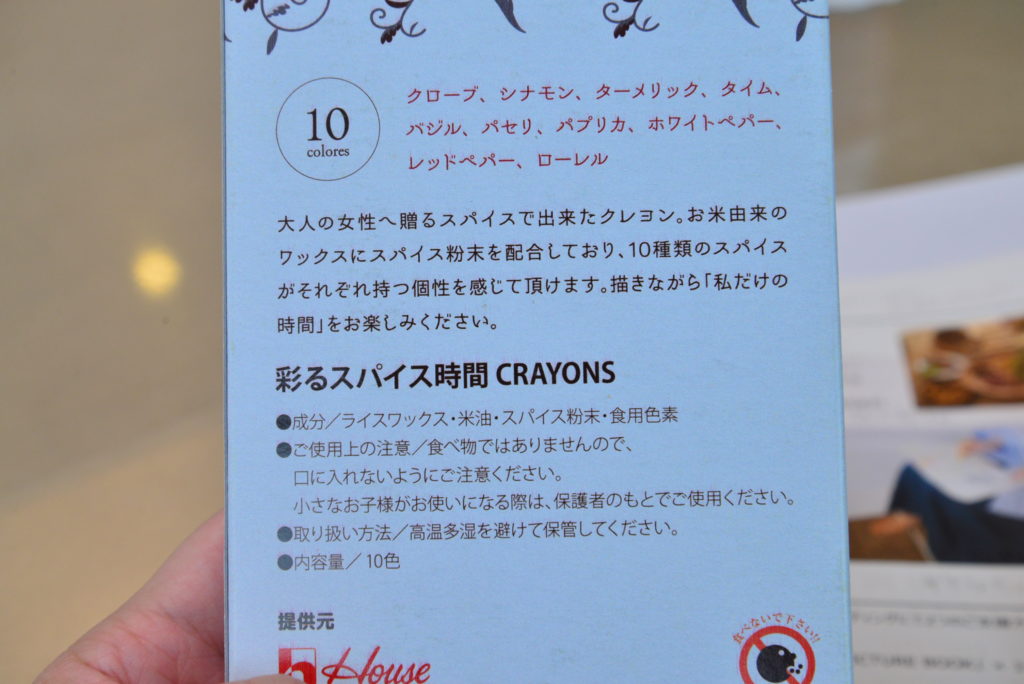 10
colores
クローブ、シナモン、ターメリック、タイム、
バジル、パセリ、パプリカ、ホワイトペパー、
レッドペパー、ローレル
大人の女性へ贈るスパイスで出来たクレヨン。お米由来の
ワックスにスパイス粉末を配合しており、10種類のスパイス
がそれぞれ持つ個性を感じて頂けます。描きながら「私だけの
時間」をお楽しみください。
彩るスパイス時間 CRAYONS
●成分／ライスワックス・米油・スパイス粉末・食用色素
●ご使用上の注意／食べ物ではありませんので、
口に入れないようにご注意ください。
小さなお子様がお使いになる際は、保護者のもとでご使用ください。
●取り扱い方法／高温多湿を避けて保管してください。
●内容量／10色
提供元
House
食べないで下さい!!